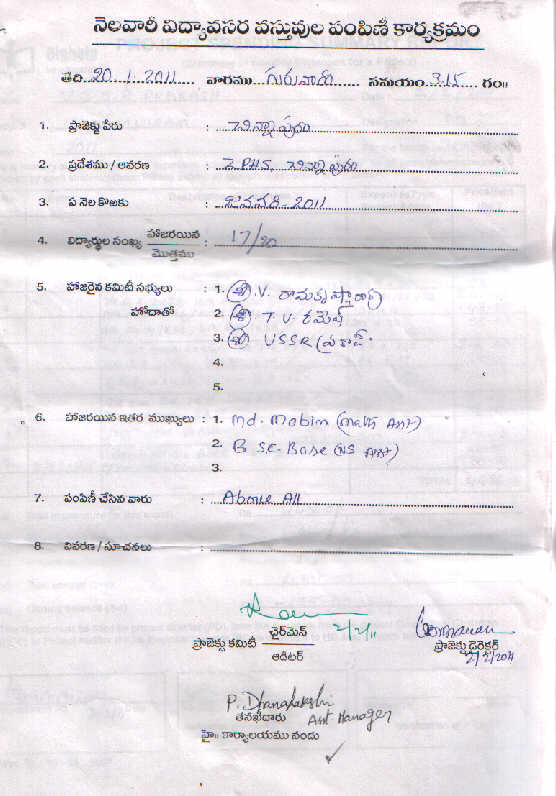 నెలవారీ విద్యావసర వస్తువుల పంపిణీ కార్యక్రమం
తేది 20.1.2011 వారము గురువారం సమయం 3.15 గం॥
1. ప్రాజెక్టు పేరు : చిన్నాపురం
2. ప్రదేశము / ఆవరణ : ZPHS, చిన్నాపురం
3. ఏ నెల కొఱకు : జనవరి-2011
4. విద్యార్థుల సంఖ్య హాజరయిన / మొత్తము : 17/20
5. హాజరైన కమిటీ సభ్యులు : 1. శ్రీ V. రామకృష్ణారావు
హోదాతో 2. శ్రీ T.V. రమేష్
3. శ్రీ USSR ప్రకాష్
4.
5.
6. హాజరయిన ఇతర ముఖ్యులు : 1. Md. Mobim (Maths Asst)
2. B S.E. Bose (NS Asst)
3.
7. పంపిణీ చేసిన వారు : Above All
8. వివరణ / సూచనలు :
2/2/11
ప్రాజెక్టు కమిటీ ఛైర్‌మెన్ / ఆడిటర్
ప్రాజెక్టు డైరెక్టర్
2/2/2011
P. Dhanalakshmi
తనిఖీదారు Asst Manager
హై॥ కార్యాలయము నందు